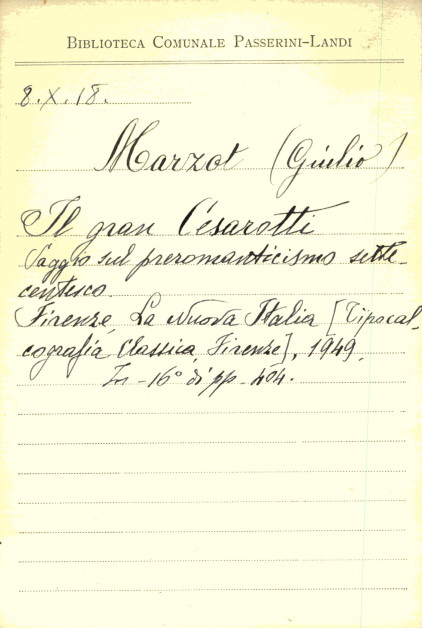 BIBLIOTECA COMUNALE PASSERINI-LANDI
8.X.18.
Marzot (Giulio)
Il gran Cesarotti
Saggio sul preromanticismo sette-
centesco.
Firenze, La Nuova Italia [Tipocal-
cografia Classica, Firenze], 1949.
In-16° di pp. 404.